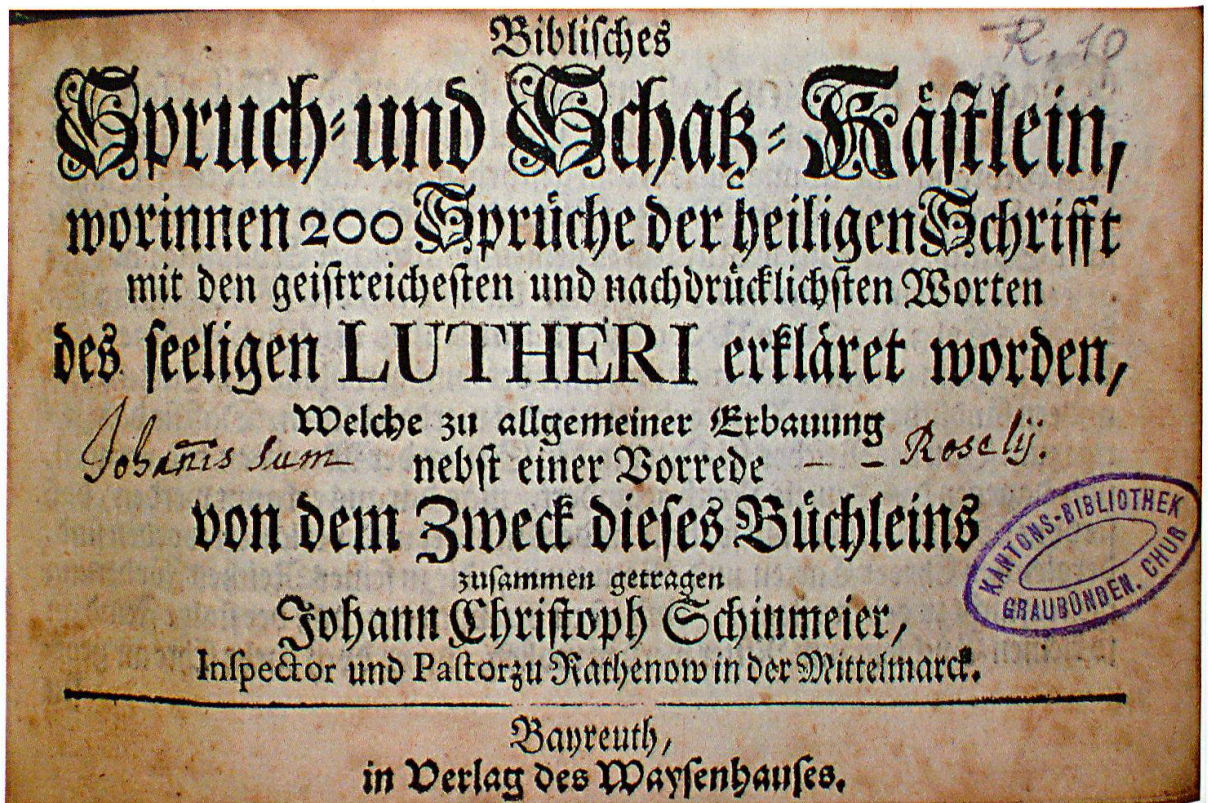 R. 10
Biblisches
Spruch- und Schatz-Kästlein,
worinnen 200 Sprüche der heiligen Schrifft
mit den geistreichesten und nachdrücklichsten Worten
des seeligen LUTHERI erkläret worden,
Welche zu allgemeiner Erbauung
Johan̄is sum nebst einer Vorrede – – Roselÿ.
von dem Zweck dieses Büchleins
KANTONS-BIBLIOTHEK
GRAUBÜNDEN. CHUR
zusammen getragen
Johann Christoph Schinmeier,
Inspector und Pastor zu Rathenow in der Mittelmarck.
Bayreuth,
in Verlag des Waysenhauses.